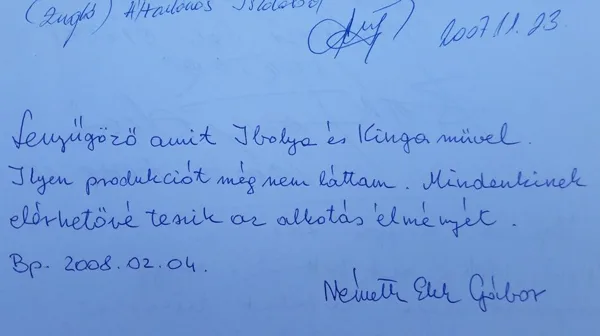 (Zugló) Általános Iskolából
2007.11.23.
Lenyűgöző amit Ibolya és Kinga művel.
Ilyen produkciót még nem láttam. Mindenkinek
elérhetővé teszik az alkotás élményét.
Bp. 2008.02.04.
Németh Elek Gábor